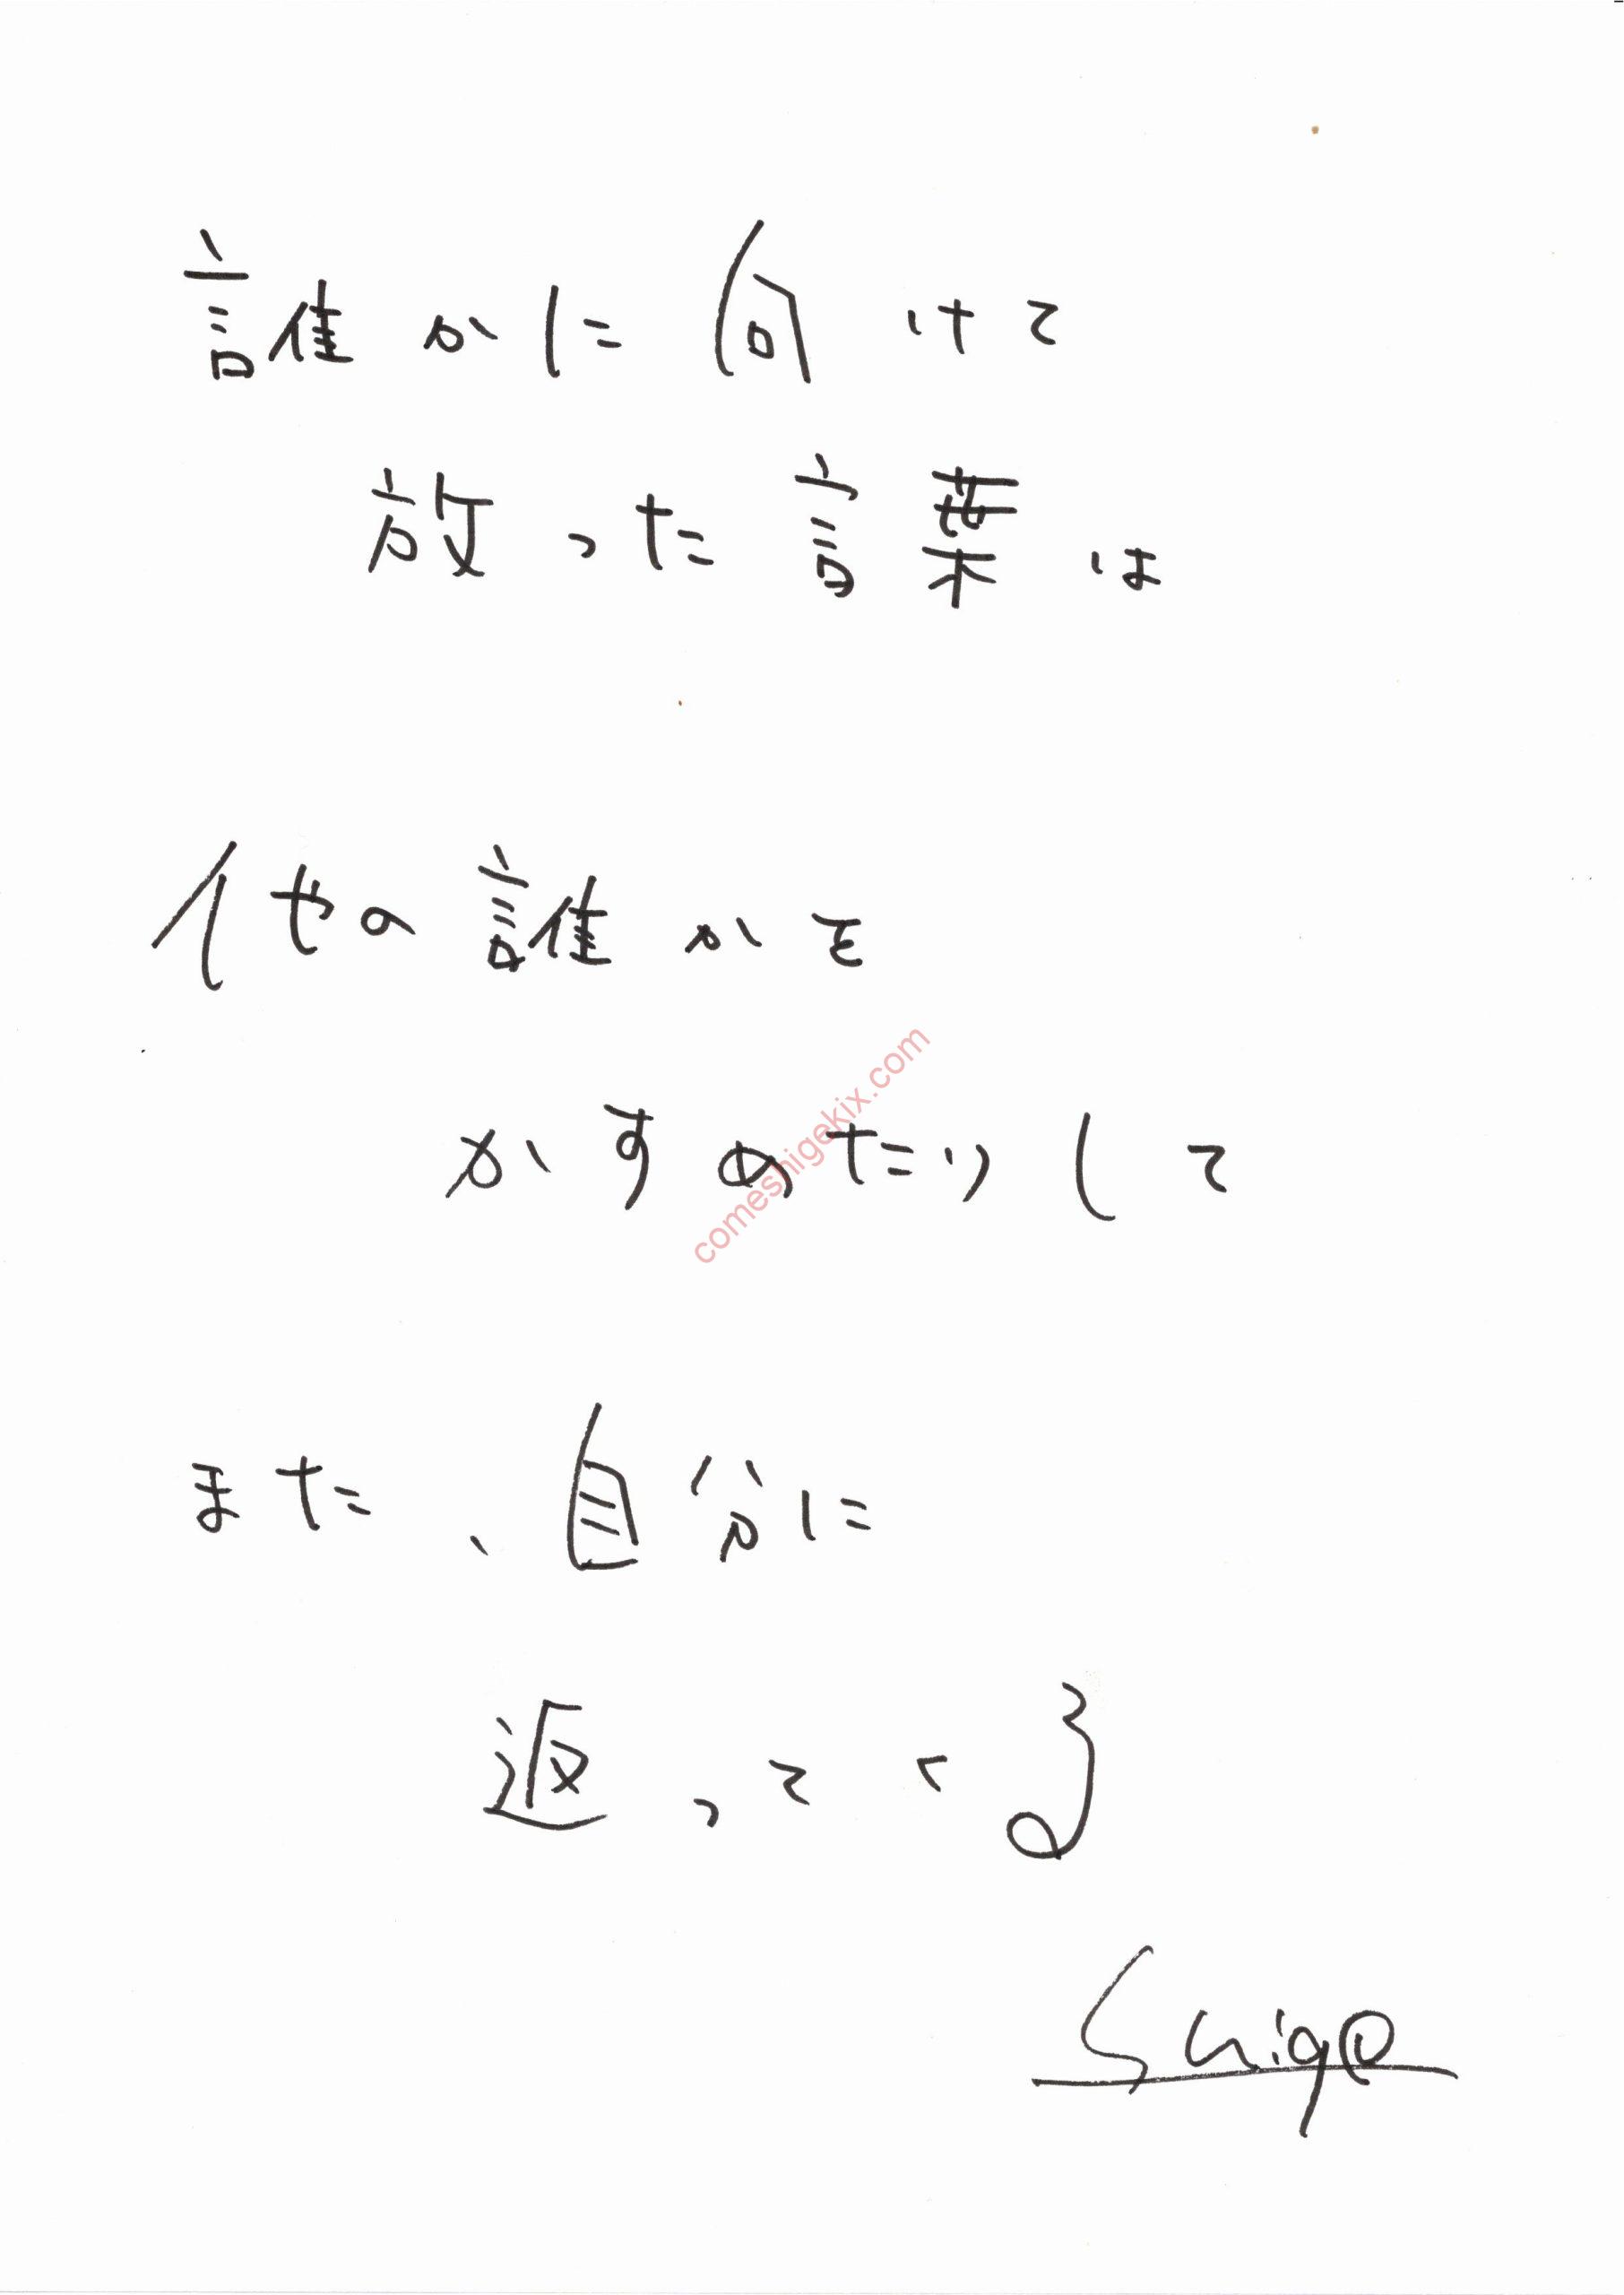 誰かに向けて
放った言葉は
他の誰かを
かすめたりして
comeshigekix.com
また、自分に
返ってくる
Shige